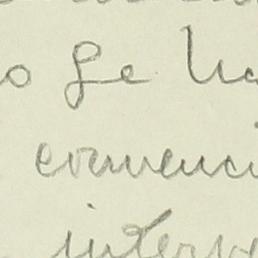 o se ha
convenci
interve